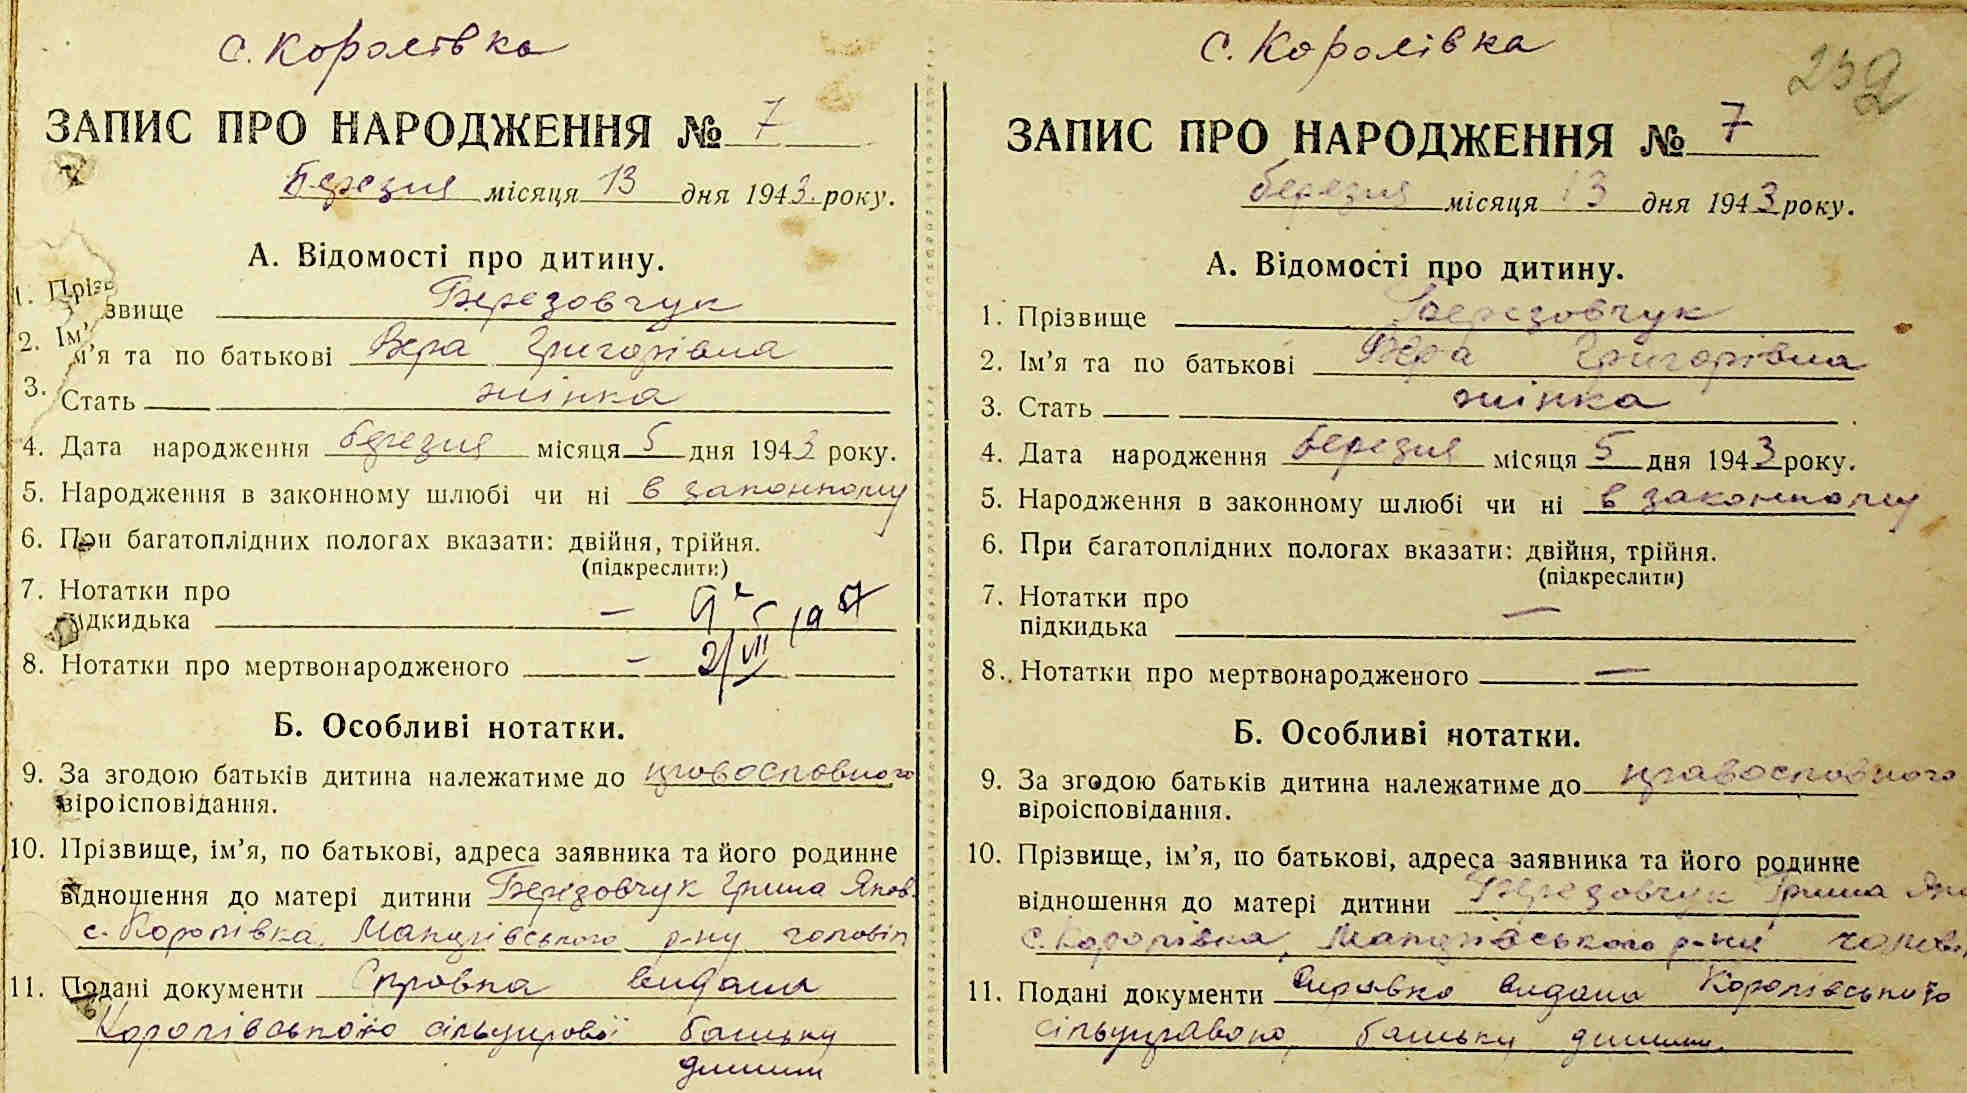 с. Королівка
ЗАПИС ПРО НАРОДЖЕННЯ № 7
березня місяця 13 дня 1943 року.
А. Відомості про дитину.
1. Прізвище Березовчук
2. Ім’я та по батькові Вера Григорівна
3. Стать жінка
4. Дата народження березня місяця 5 дня 1943 року.
5. Народження в законному шлюбі чи ні в законному
6. При багатоплідних пологах вказати: двійня, трійня.
(підкреслити)
7. Нотатки про
підкидька —
8. Нотатки про мертвонародженого — 2/VII
Б. Особливі нотатки.
9. За згодою батьків дитина належатиме до православного
віроісповідання.
10. Прізвище, ім’я, по батькові, адреса заявника та його родинне
відношення до матері дитини Березовчук Гриша Яков.
с. Королівка, р-ну чоловік
11. Подані документи Справка видана
Королівською сільуправої батьку
дитини
с. Королівка
252
ЗАПИС ПРО НАРОДЖЕННЯ № 7
березня місяця 13 дня 1943 року.
А. Відомості про дитину.
1. Прізвище Березовчук
2. Ім’я та по батькові Вера Григорівна
3. Стать жінка
4. Дата народження березня місяця 5 дня 1943 року.
5. Народження в законному шлюбі чи ні в законному
6. При багатоплідних пологах вказати: двійня, трійня.
(підкреслити)
7. Нотатки про
підкидька —
8. Нотатки про мертвонародженого —
Б. Особливі нотатки.
9. За згодою батьків дитина належатиме до православного
віроісповідання.
10. Прізвище, ім’я, по батькові, адреса заявника та його родинне
відношення до матері дитини Березовчук Гриша
с. Королівка, р-ну чолові
11. Подані документи Справка видана Королівською
сільуправою батьку дитини.